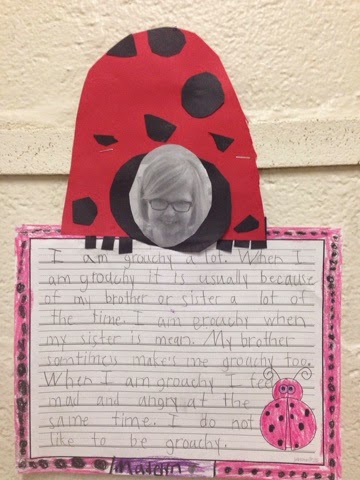 I am grouchy a lot. When I
am grouchy it is usually because
of my brother or sister a lot of
the time. I am grouchy when
my sister is mean. My brother
somtimes makes me grouchy too.
When I am grouchy I feel
mad and angry at the
same time. I do not
like to be grouchy.
Madelyn